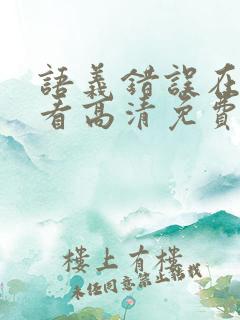 語義錯誤在
看高清免費
樓上有樓
未經同意禁止轉載